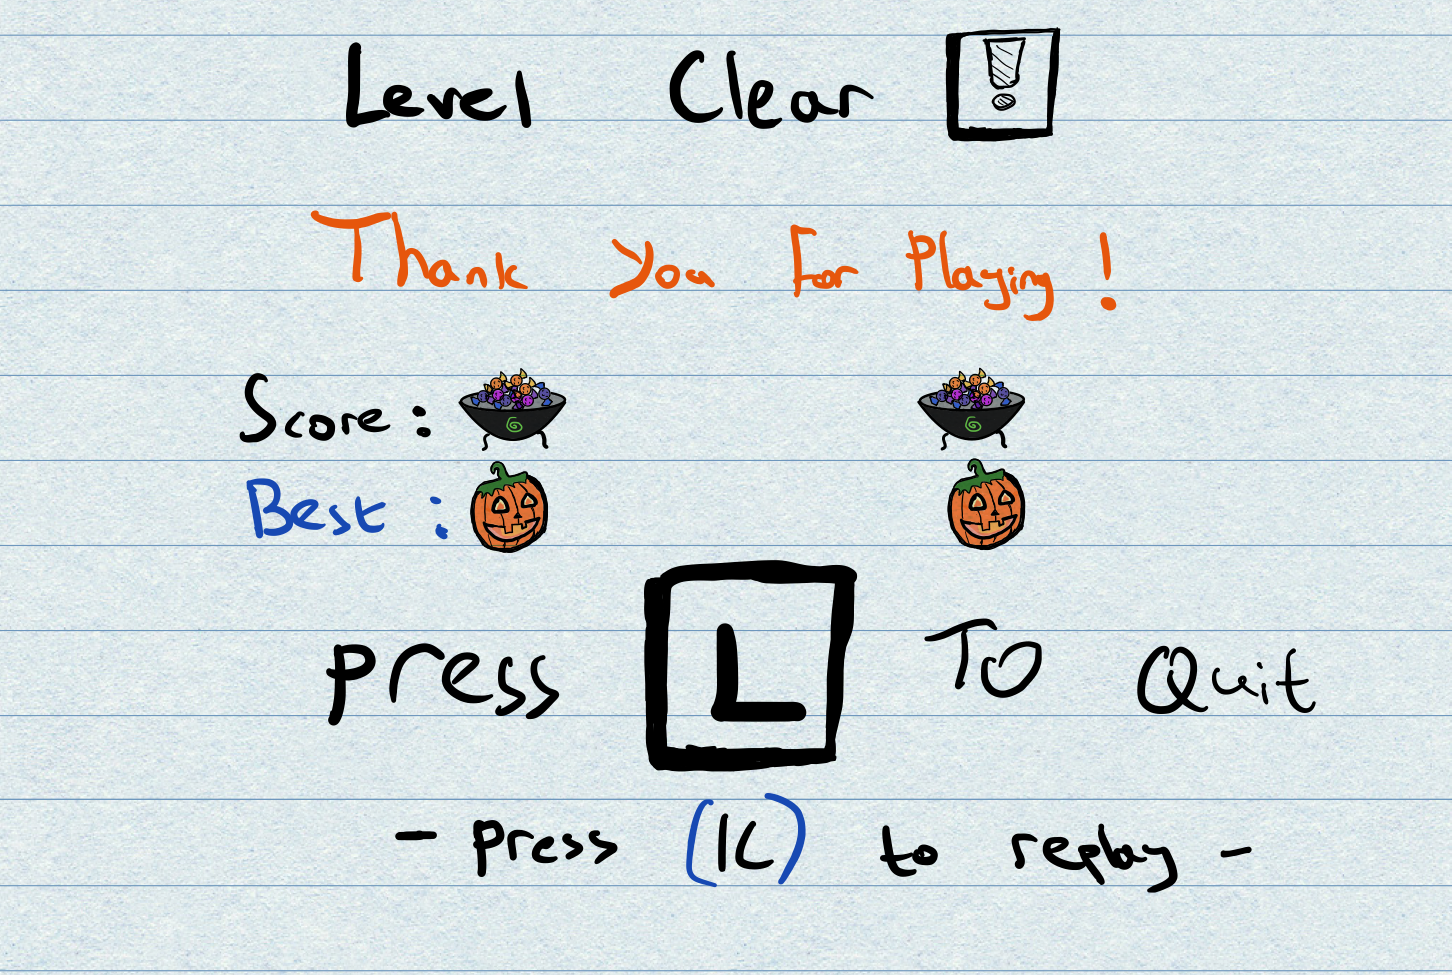 Level Clear !
Thank You For Playing!
Score :
Best :
press L To Quit
- press (K) to replay -